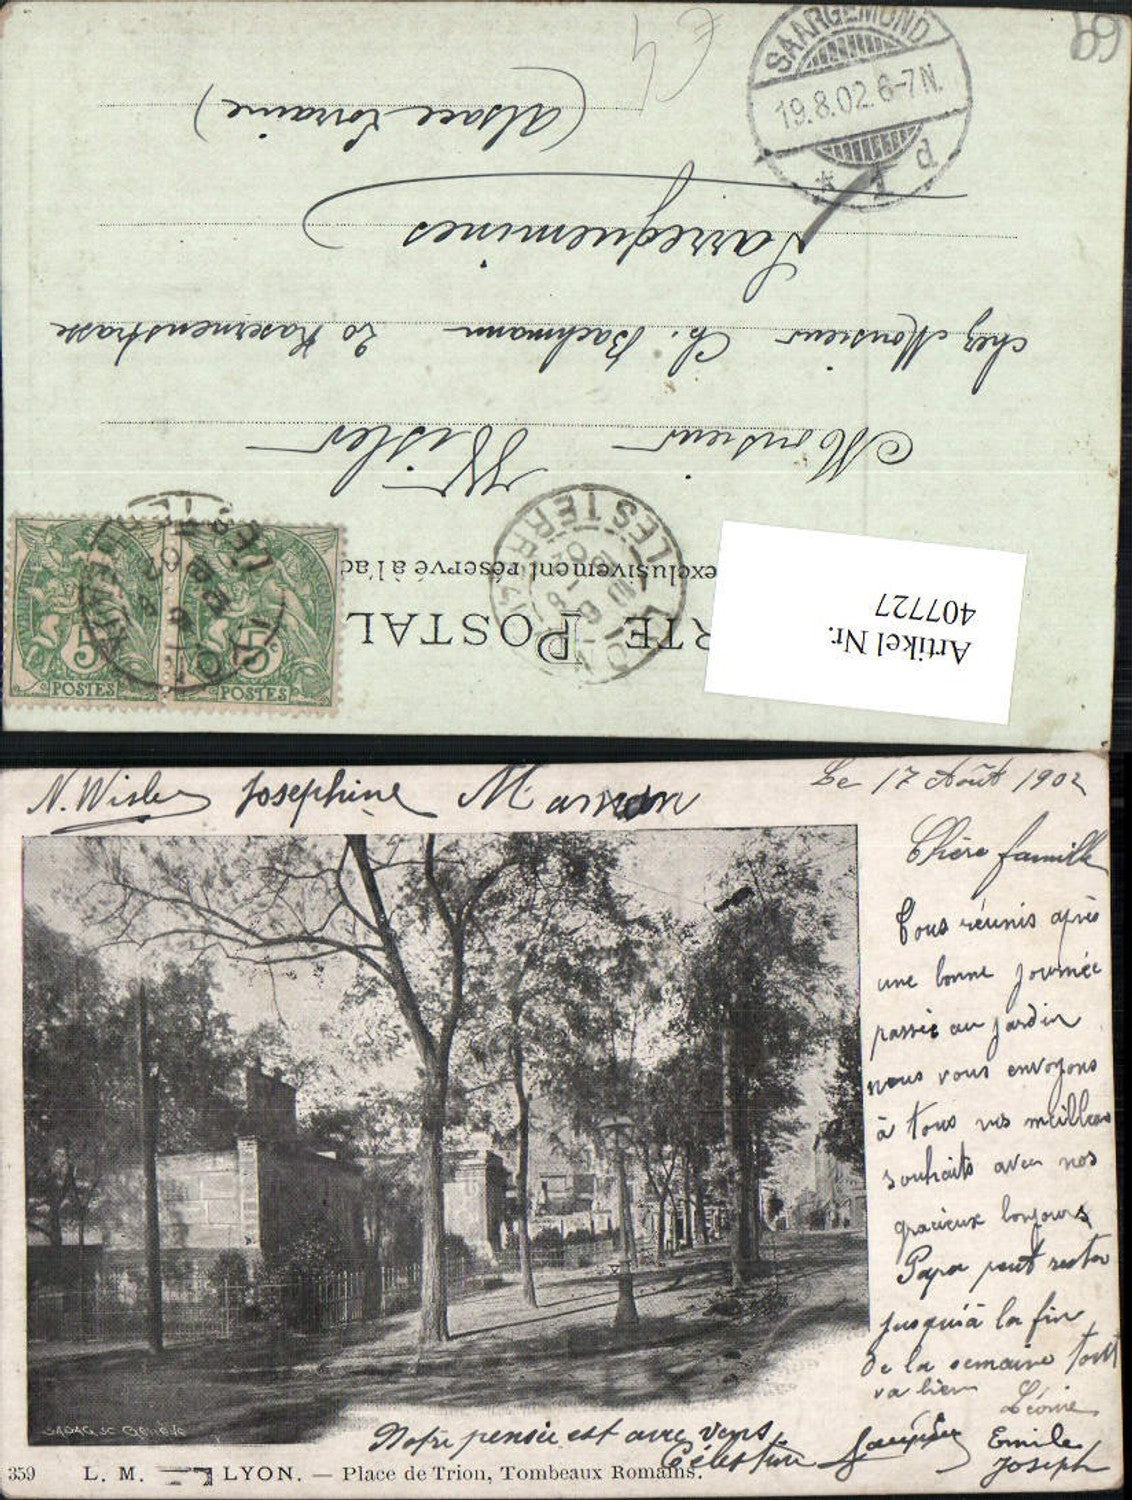 SAARGEMÜND
19.8.02.6-7N.
* 1 d
69
€4
(Alsace Lorraine)
Sarreguemines
chez Monsieur Ch. Bachmann 20 Kasernenstrasse
Monsieur Wisler
exclusivement réservé à l'ad
RTE POSTAL
LYON
LES TERREAUX
5c
POSTES
5c
POSTES
Artikel Nr.
407727
N. Wisler Josephine Marion
Le 17 Août 1902
Chère famille
Tous réunis après
une bonne journée
passée au jardin
nous vous envoyons
à tous vos meilleurs
souhaits avec nos
gracieux bonjours
Papa peut rester
jusqu'à la fin
de la semaine tout
va bien Léonie
Notre pensée est avec vous
Célestine
Emile
Joseph
SADAG SC GENÈVE
359 L. M. LYON. — Place de Trion, Tombeaux Romains.